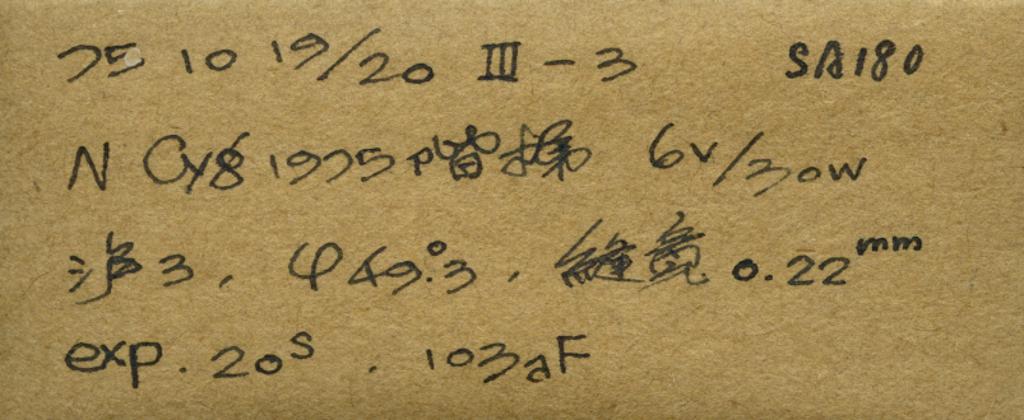 75 10 19/20 III-3 SA180
N Cyg 1975 階梯 6v/30w
濾3, φ49.°3, 縫寬 0.22mm
exp. 20s. 103aF